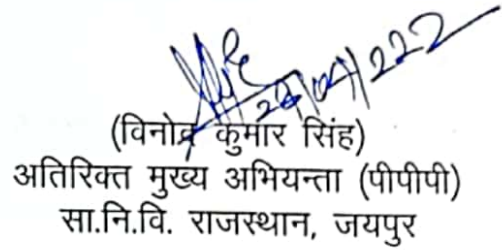 (विनोद कुमार सिंह)
अतिरिक्त मुख्य अभियन्ता (पीपीपी)
सा.नि.वि. राजस्थान, जयपुर